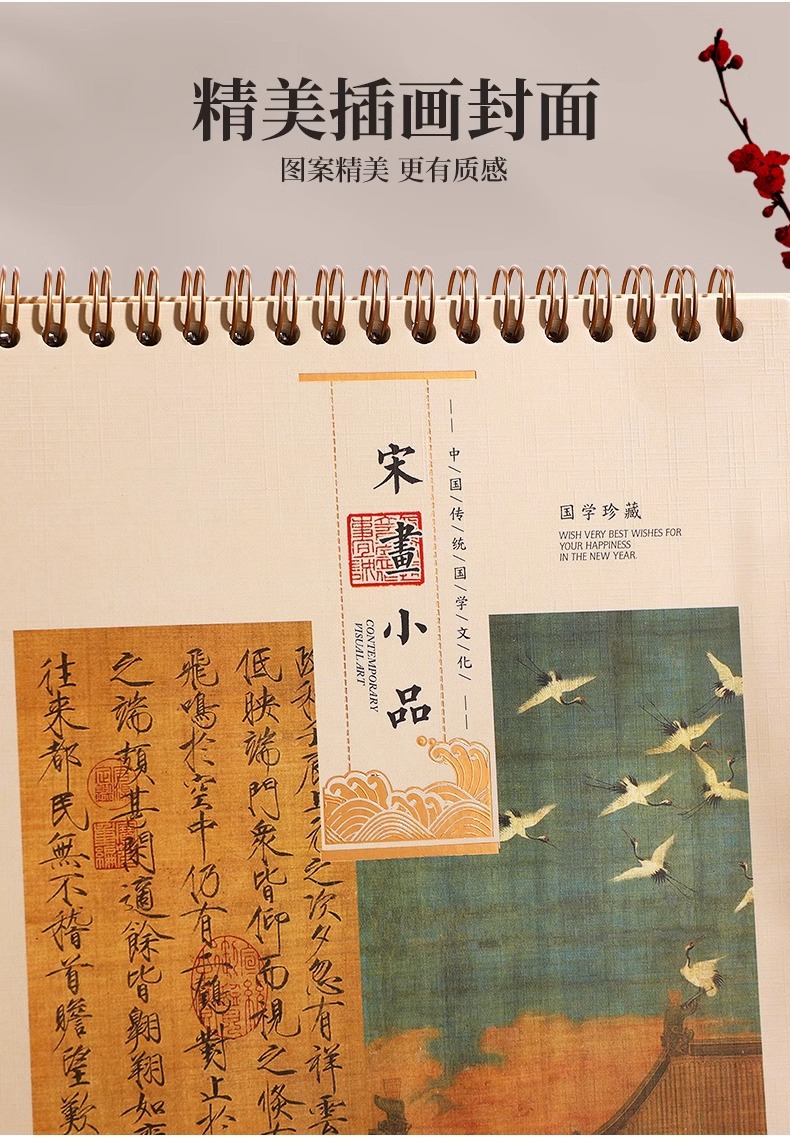 精美插画封面
图案精美 更有质感
宋畫小品
CONTEMPORARY
VISUAL ART
——中/国/传/统/国/学/文/化/——
国学珍藏
WISH VERY BEST WISHES FOR
YOUR HAPPINESS
IN THE NEW YEAR.
上元之次夕忽有祥雲
低映端門眾皆仰而視之倏有
飛鳴於空中仍有二鶴對止於
之端頗甚閑適餘皆翱翔如
往來都民無不稽首瞻望歎